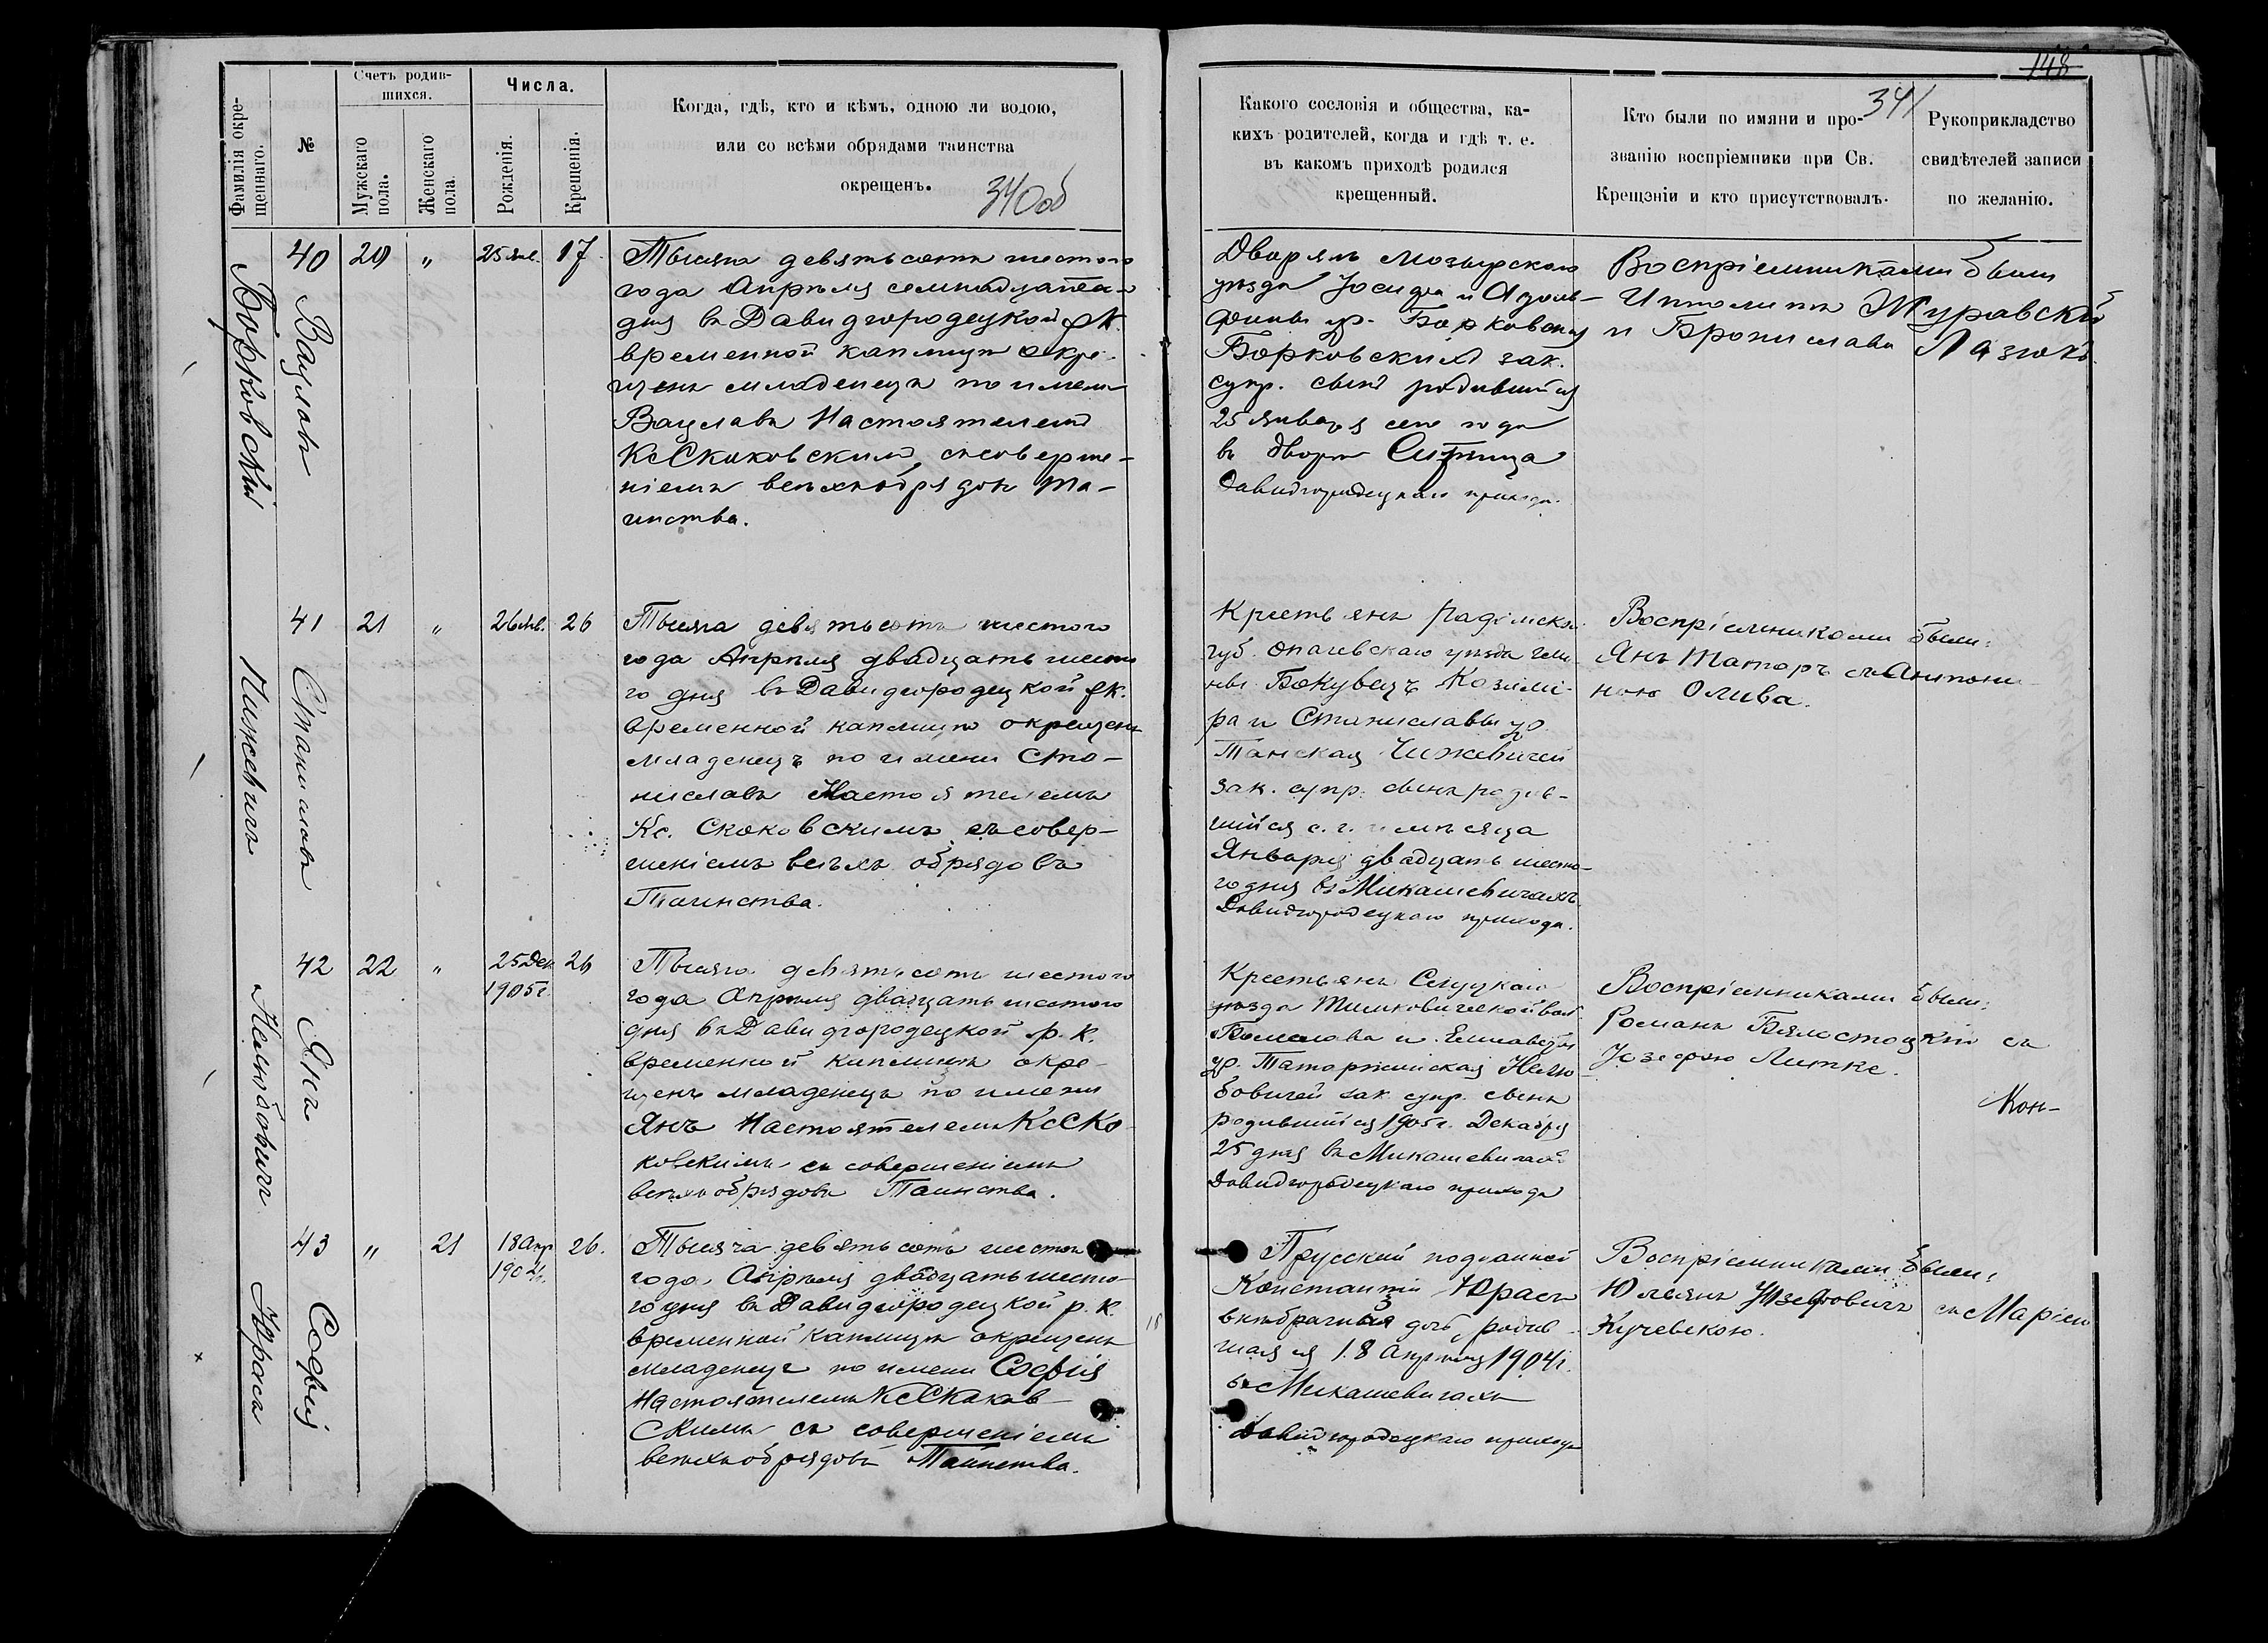 148
341
Фамилія окре-
щеннаго.
№
Счетъ родив-
шихся.
Мужскаго
пола.
Женскаго
пола.
Числа.
Рожденія.
Крещенія.
Когда, гдѣ, кто и кѣмъ, одною ли водою,
или со всѣми обрядами таинства
окрещенъ.
340об
Какого сословія и общества, ка-
кихъ родителей, когда и гдѣ т. е.
въ какомъ приходѣ родился
крещенный.
Кто были по имяни и про-
званію воспріемники при Св.
Крещэніи и кто присутствовалъ.
Рукоприкладство
свидѣтелей записи
по желанію.
Борковскій
40
Вацлавъ
20 " 25 Янв. 17
Тысяча девятьсотъ шестого
года Апрѣля семнадцатаго
дня въ Давидгородецкой р.к.
временной каплицѣ окре-
щенъ младенецъ по имени
Вацлавъ Настоятелемъ
Кс Скаковскимъ съ соверше-
ніемъ всѣхъ обрядовъ Та-
инства.
Дворянъ Мозырскаго
уѣзда Іосифа и Адоль-
фины ур. Борковская
Борковскихъ зак.
супр. сынъ родившійся
25 Января сего года
въ дворѣ Ситница
Давидгородецкаго прихода.
Воспріемниками были
Ипполитъ Журавскій
и Бронислава Лазюкъ.
Чижевичъ
41
Станиславъ
21 " 26 Янв. 26
Тысяча девятьсотъ шестого
года Апрѣля двадцать шесто
го дня въ Давидгородецкой р.к.
временной каплицѣ окрещенъ
младенецъ по имени Ста-
ниславъ Настоятелемъ
Кс. Скаковскимъ съ совер-
шеніемъ всѣхъ обрядовъ
Таинства.
Крестьянъ Радомской
губ. Опачевскаго уѣзда гми-
ны Бокувецъ Казими-
ра и Станиславы ур.
Танская Чижевичей
зак. супр. сынъ родив-
шійся с. г. мѣсяца
Января двадцать шесто-
го дня въ Микашевичахъ
Давидгородецкаго прихода.
Воспріемниками были:
Янъ Таторъ съ Антони-
ною Олива.
Нелюбовичъ
42
Янъ
22 " 25 Дек 26
1905 г.
Тысяча девятьсотъ шестого
года Апрѣля двадцать шестого
дня въ Давидгородецкой р. к.
временной каплицѣ окре-
щенъ младенецъ по имени
Янъ Настоятелемъ Кс Ска-
ковскимъ съ совершеніемъ
всѣхъ обрядовъ Таинства.
Крестьянъ Слуцкаго
уѣзда Тимковичской вол.
и Елизаветы
ур. Нелю-
бовичей зак. супр. сынъ
родившійся 1905 г. Декабря
25 дня въ Микашевичахъ
Давидгородецкаго прихода
Воспріемниками были:
Романъ Бялостоцкій съ
Юзефою Литке.
Кон-
Юраса
43
Софія
" 21 18 Апр 26.
1904 г.
Тысяча девятьсотъ шестого
года Апрѣля двадцать шесто-
го дня въ Давидгородецкой р. к.
временной каплицѣ окрещенъ
младенецъ по имени Софія
Настоятелемъ Кс Скаков-
скимъ съ совершеніемъ
всѣхъ обрядовъ Таинства.
Прусской подданной
Констанціи Юрасъ
внѣбрачная дочь, родив-
шаяся 18 Апрѣля 1904 г.
въ Микашевичахъ
Давидгородецкаго прихода
Воспріемниками были:
Юльянъ Юзефовичъ съ Маріею
Кучевскою.